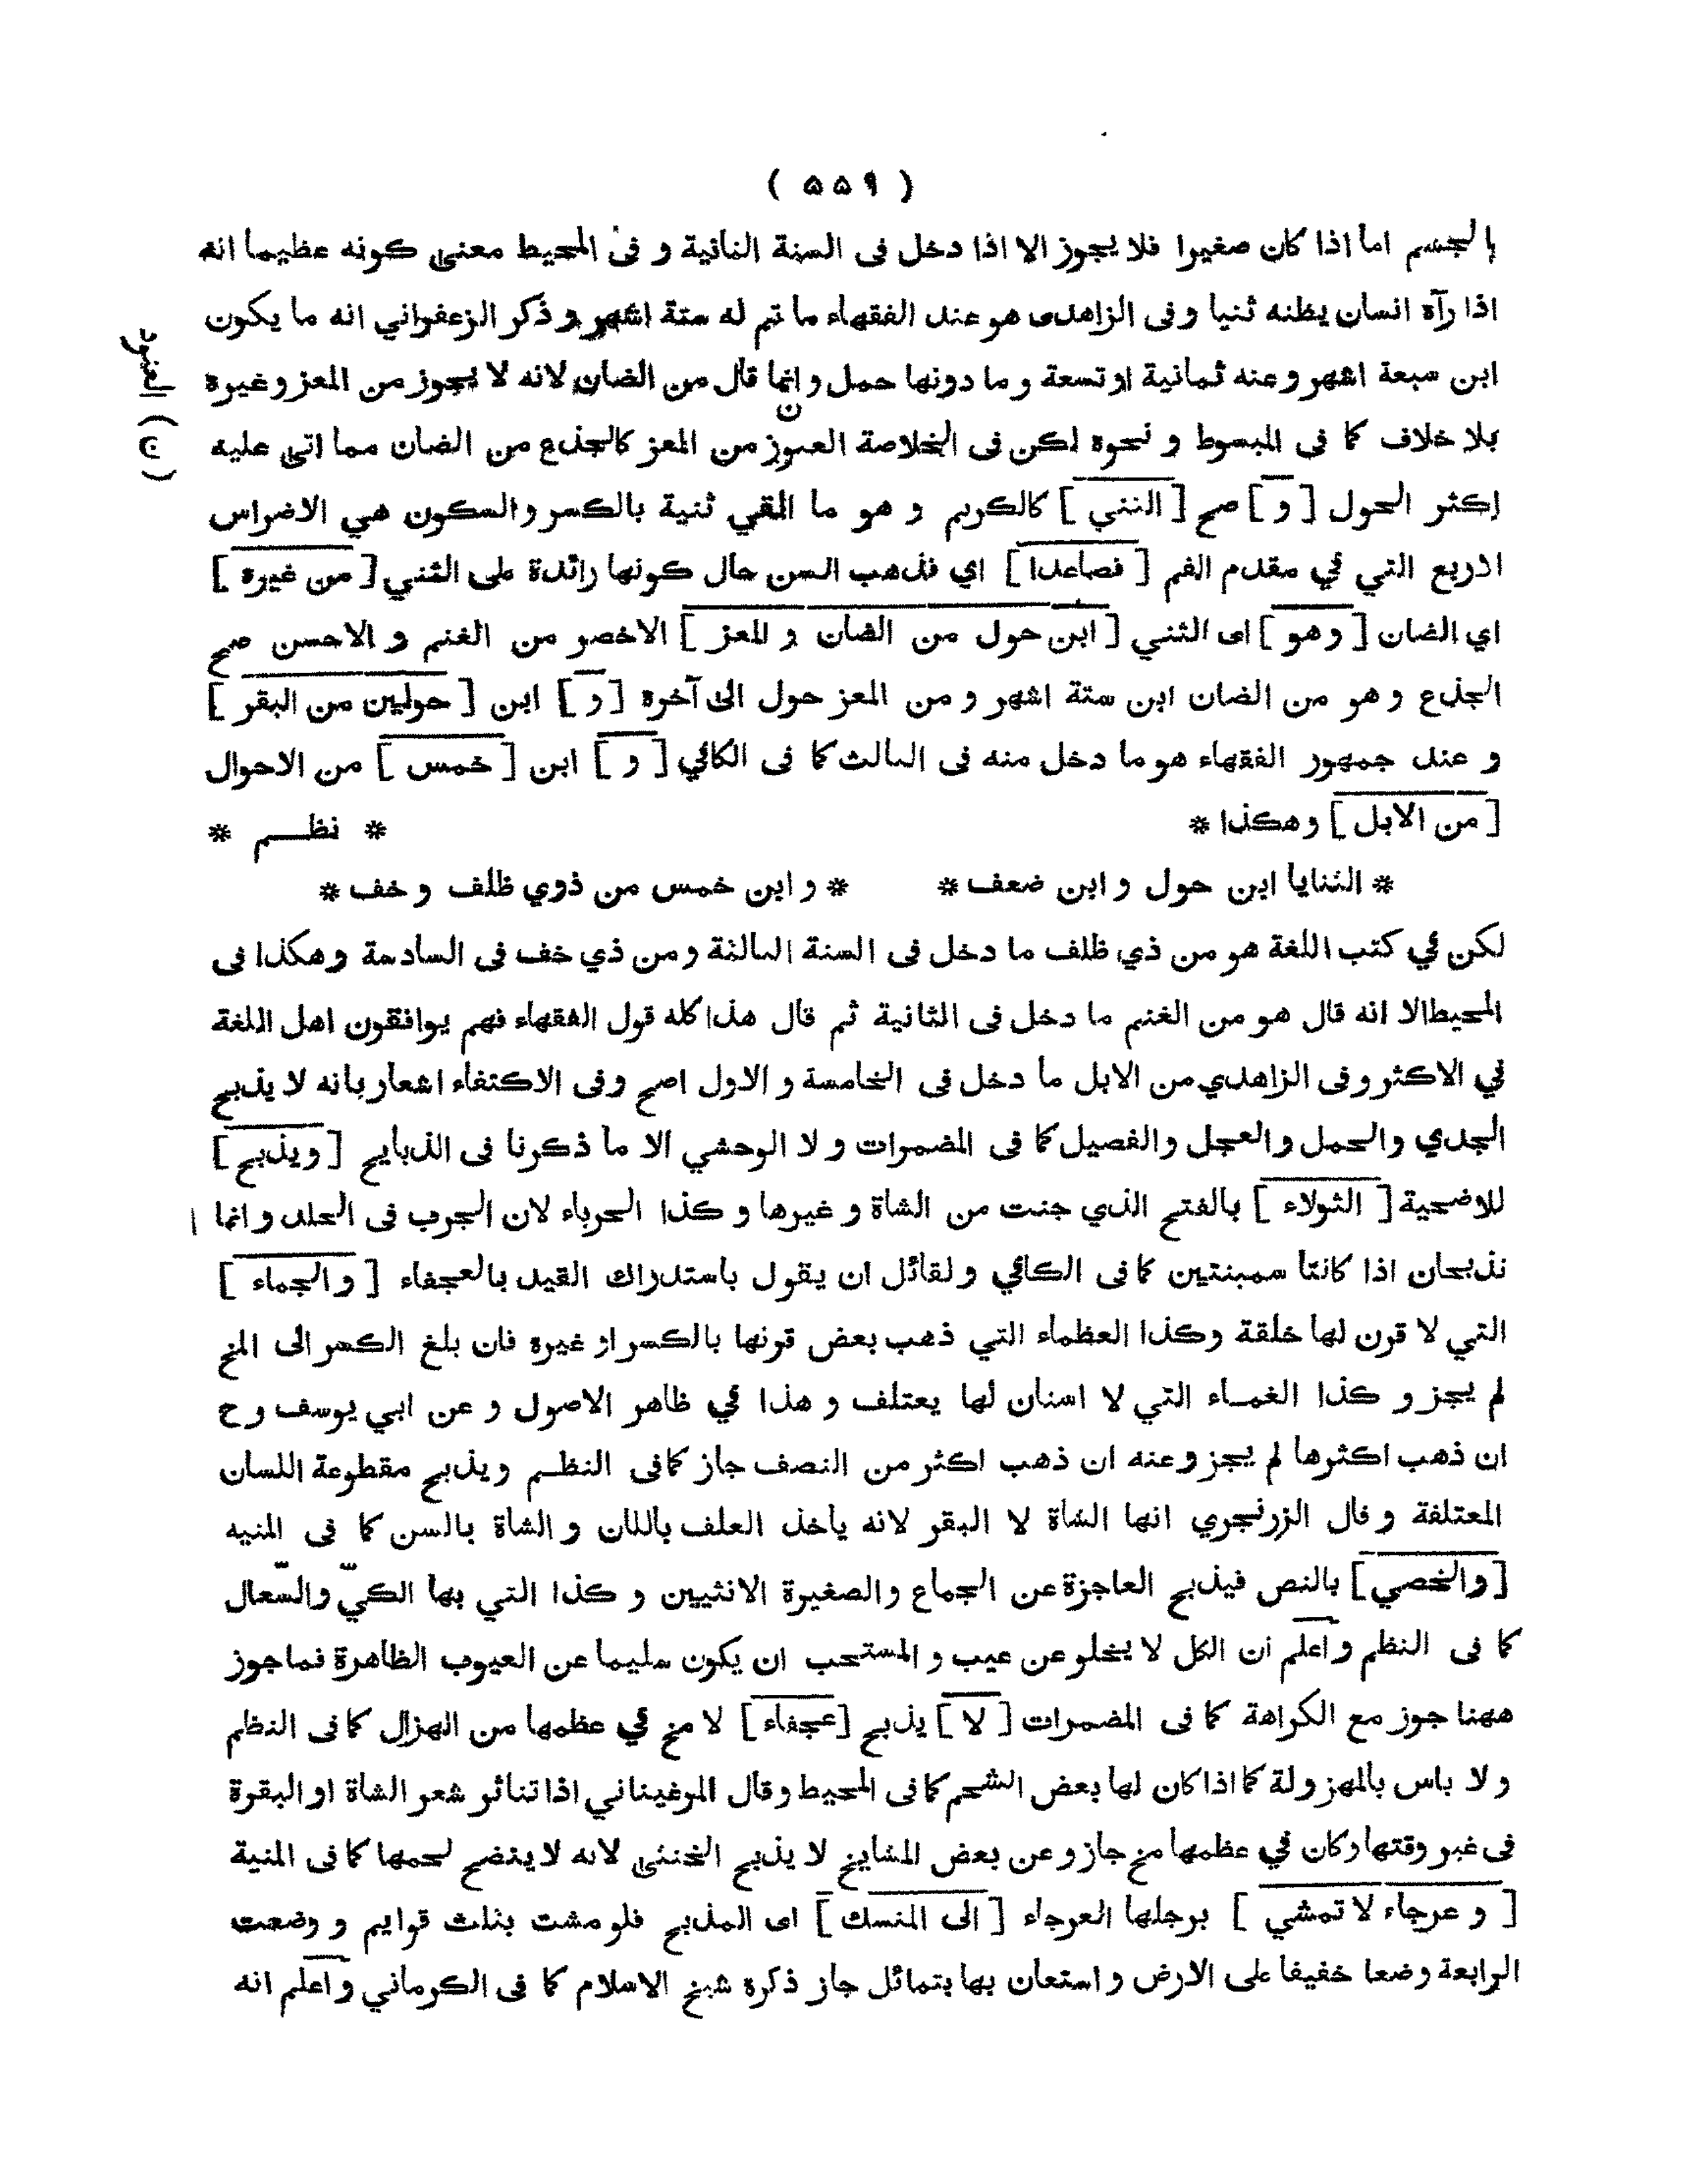 ( ۵۵۹ )
الجسم اما اذا كان صغيرا فلا يجوز الا اذا دخل فى السنة الثانية و فى المحيط معنى كونه عظيما انه
اذا رآه انسان يظنه ثنيا و فى الزاهدى هو عند الفقهاء ما تم له ستة اشهر و ذكر الزعفراني انه ما يكون
ابن سبعة اشهر و عنه ثمانية او تسعة و ما دونها حمل و انما قال من الضان لانه لا يجوز من المعز و غيره
بلا خلاف كما فى المبسوط و نحوه لكن فى الخلاصة من المعز كالجذع من الضان مما اتى عليه
العتود ( ن )
اكثر الحول [ و ] صح [ الثني ] كالكريم و هو ما القي ثنية بالكسر و السكون هي الاضراس
الاربع التي في مقدم الفم [ فصاعدا ] اي فذهب السن حال كونها زائدة على الثني [ من غيره ]
اي الضان [ و هو ] اى الثني [ ابن حول من الضان و المعز ] الاخصر من الغنم و الاحسن صح
الجذع و هو من الضان ابن ستة اشهر و من المعز حول الى آخره [ و ] ابن [ حولين من البقر ]
و عند جمهور الفقهاء هو ما دخل منه فى الثالث كما فى الكافي [ و ] ابن [ خمس ] من الاحوال
[ من الابل ] و هكذا * * نظـــم *
* الثنايا ابن حول و ابن ضعف * * و ابن خمس من ذوي ظلف و خف *
لكن في كتب اللغة هو من ذي ظلف ما دخل فى السنة الثالثة و من ذي خف فى السادسة و هكذا فى
المحيط الا انه قال هو من الغنم ما دخل فى الثانية ثم قال هذا كله قول الفقهاء فهم يوافقون اهل اللغة
في الاكثر و فى الزاهدي من الابل ما دخل فى الخامسة و الاول اصح و فى الاكتفاء اشعار بانه لا يذبح
الجدي و الحمل و العجل و الفصيل كما فى المضمرات و لا الوحشي الا ما ذكرنا فى الذبايح [ و يذبح ]
للاضحية [ الثولاء ] بالفتح الذي جنت من الشاة و غيرها و كذا الجرباء لان الجرب فى الجلد و انما
تذبحان اذا كانتا سمينتين كما فى الكافي و لقائل ان يقول باستدراك القيد بالعجفاء [ و الجماء ]
التي لا قرن لها خلقة و كذا العظماء التي ذهب بعض قرنها بالكسر او غيره فان بلغ الكسر الى المخ
لم يجز و كذا الغمــاء التي لا اسنان لها يعتلف و هذا في ظاهر الاصول و عن ابي يوسف رح
ان ذهب اكثرها لم يجز و عنه ان ذهب اكثر من النصف جاز كما فى النظــم و يذبح مقطوعة اللسان
المعتلفة و قال الزرنجري انها الشاة لا البقر لانه ياخذ العلف باللان و الشاة بالسن كما فى المنيه
[ و الخصي ] بالنص فيذبح العاجزة عن الجماع و الصغيرة الانثيين و كذا التي بها الكيّ و السّعال
كما فى النظم و اعلم ان الكل لا يخلو عن عيب و المستحب ان يكون سليما عن العيوب الظاهرة فما جوز
ههنا جوز مع الكراهة كما فى المضمرات [ لا ] يذبح [ عجفاء ] لا مخ في عظمها من الهزال كما فى النظم
و لا باس بالمهزولة كما اذا كان لها بعض الشحم كما فى المحيط و قال المرغيناني اذا تناثر شعر الشاة او البقرة
فى غير وقتها و كان في عظمها مخ جاز و عن بعض المشايخ لا يذبح الخنثى لانه لا ينضج لحمها كما فى المنية
[ و عرجاء لا تمشي ] برجلها العرجاء [ الى المنسك ] اى المذبح فلو مشت بثلث قوايم و وضعت
الرابعة وضعا خفيفا على الارض و استعان بها بتمائل جاز ذكره شيخ الاسلام كما فى الكرماني و اعلم انه